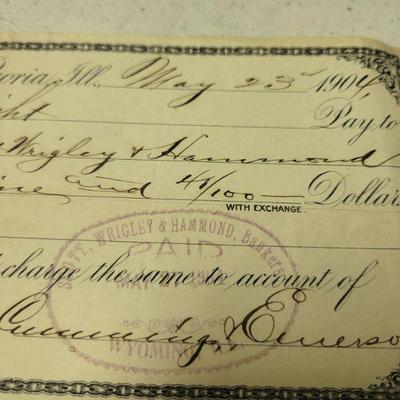 oria, Ill., May 23 1904
ight Pay to
Wrigley & Hammond
ine and 48/100 Dollars
WITH EXCHANGE
SCOTT, WRIGLEY & HAMMOND, Bankers
PAID
MAY
charge the same to account of
Cummings & Emerso
WYOMING